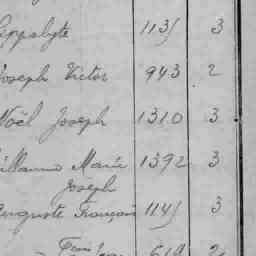 ippolyte 113 3
Joseph Victor 943 2
Noël Joseph 1310 3
uillaume Marie 1392 3
Joseph
uguste François 114 3
619 2